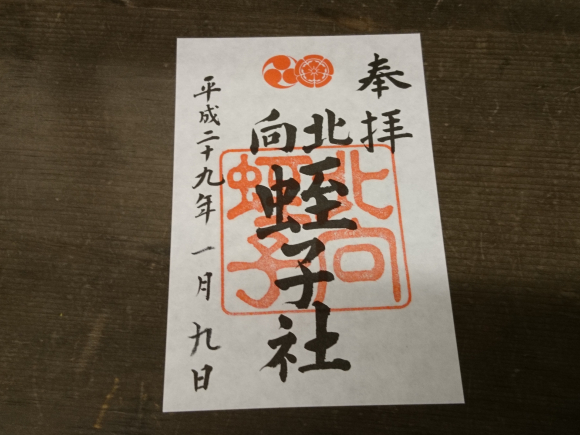 奉拝
北向
蛭子社
平成二十九年一月九日
北向
蛭子